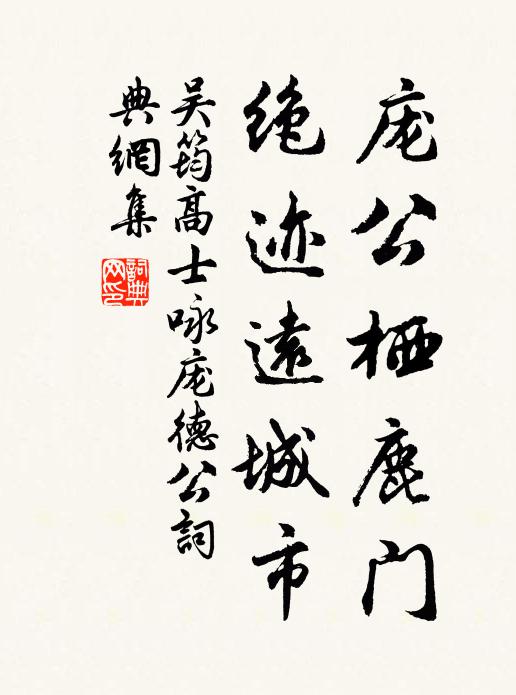 庞公栖鹿门
绝迹遠城市
吴筠高士咏庞德公詞
典網集
詞典
网印